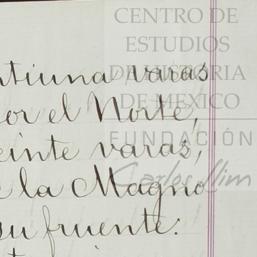 CENTRO DE
ESTUDIOS
DE HISTORIA
DE MEXICO
FUNDACIÓN
Carlos Slim
ntiuna varas
or el Norte,
einte varas,
e la Magno
su fruente: